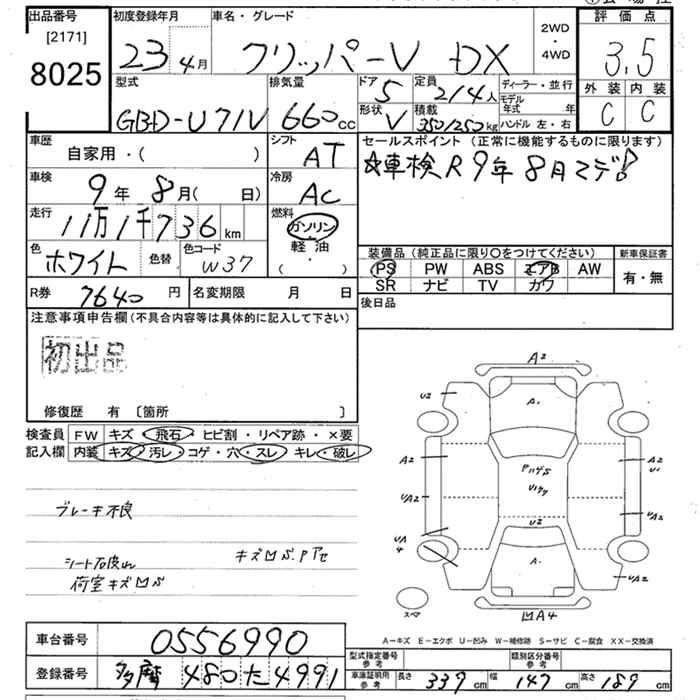 出品番号
[2171]
8025
初度登録年月
23 4月
車名・グレード
クリッパーV DX
2WD
・
4WD
評価点
3.5
外装 内装
C C
型式
GBD-U71V
排気量
660 cc
ドア
5
定員
2/4人
形状
V
積載
350/250 kg
ディーラー・並行
モデル年式 年
ハンドル 左・右
車歴
自家用・( )
シフト
AT
セールスポイント(正常に機能するものに限ります)
☆車検R9年8月マデ!
車検
9年 8月( 日)
冷房
AC
走行
11万1千736 km
燃料
ガソリン
軽油
( )
色
ホワイト
色替
色コード
W37
装備品(純正品に限り○をつけてください)
PS PW ABS エアB AW
SR ナビ TV カワ
新車保証書
有・無
R券 7640円
名変期限 月 日
後日品
注意事項申告欄(不具合内容等は具体的に記入して下さい)
初出品
修復歴 有 〔箇所 〕
検査員
記入欄
FW キズ・飛石・ヒビ割・リペア跡・×要
内装 キズ・汚レ・コゲ・穴・スレ・キレ・破レ
ブレーキ不良
荷室キズ凹S
A2
U2
A.
A2
A2
U1
UA2
UA2
U2
UA
4
A.
UA2
スペア
凹A4
A-キズ E-エクボ U-凹み W-補修跡 S-サビ C-腐食 XX-交換済
車台番号 0556990
登録番号 多摩 480 た 4991
型式指定番号
参考
類別区分番号
参考
車庫証明用
参考
長さ 339 cm 幅 147 cm 高さ 189 cm